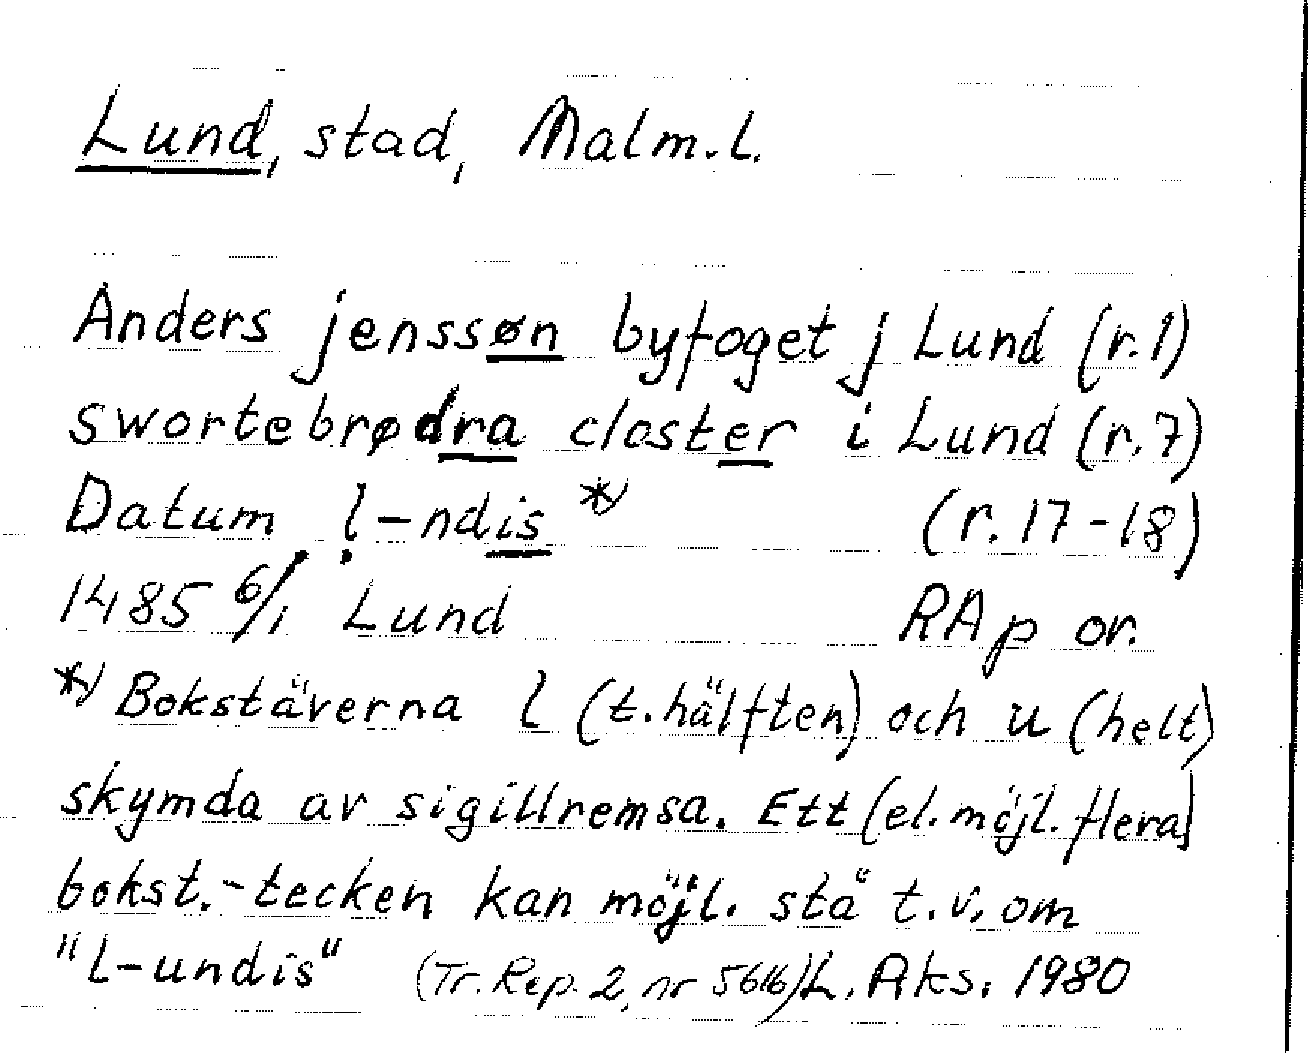 Lund, stad, Malm.l.
Anders jenssøn byfoget j Lund (r.1)
swortebrødra closter i Lund (r.7)
Datum ḷ-ndis *) (r.17-18)
1485 6/1 Lund RAp or.
*) Bokstäverna l (t. hälften) och u (helt)
skymda av sigillremsa. Ett (el. möjl. flera)
bokst.-tecken kan möjl. stå t.v. om
"l-undis" (Tr. Rep. 2, nr 5616) L. Aks. 1980